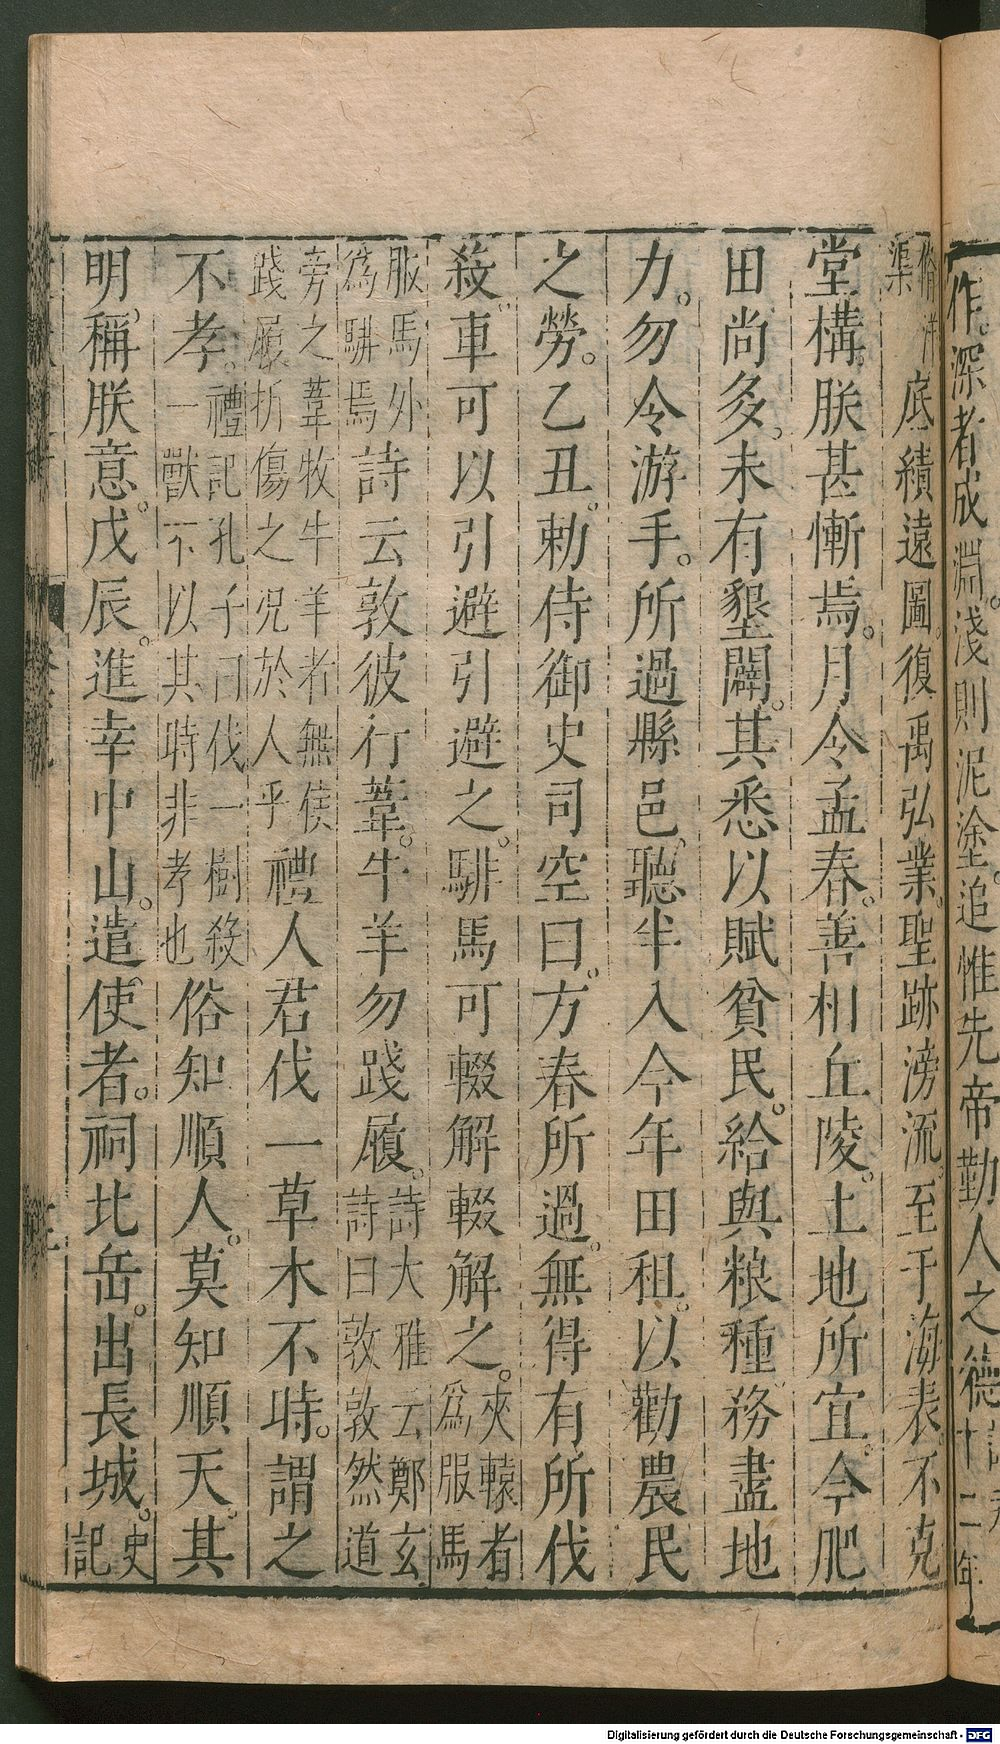 作。深者成淵。淺則泥塗。追惟先帝勤人之德十二年
脩汴
渠
底績遠圖。復禹弘業。聖跡滂流。至于海表。不克
堂構。朕甚慚焉。月令孟春。善相丘陵。土地所宜。今肥
田尚多。未有墾闢。其悉以賦貧民。給與粮種務盡地
力。勿令游手。所過縣邑。聽半入今年田租。以勸農民
之勞。乙丑。勑侍御史司空曰。方春所過。無得有所伐
殺。車可以引避引避之。騑馬可輟解輟解之。
夾轅者
爲服馬
服馬外
爲騑焉
詩云敦彼行葦。牛羊勿踐履。
詩大雅云鄭玄
詩曰敦敦然道
旁之葦牧牛羊者無俟
踐履折傷之况於人乎
禮人君伐一草木不時。謂之
不孝。
禮記孔子曰伐一樹殺
一獸不以其時非孝也
俗知順人。莫知順天。其
明。稱朕意。戊辰。進幸中山。遣使者。祠北岳。出長城。
史
記
Digitalisierung gefördert durch die Deutsche Forschungsgemeinschaft - DFG